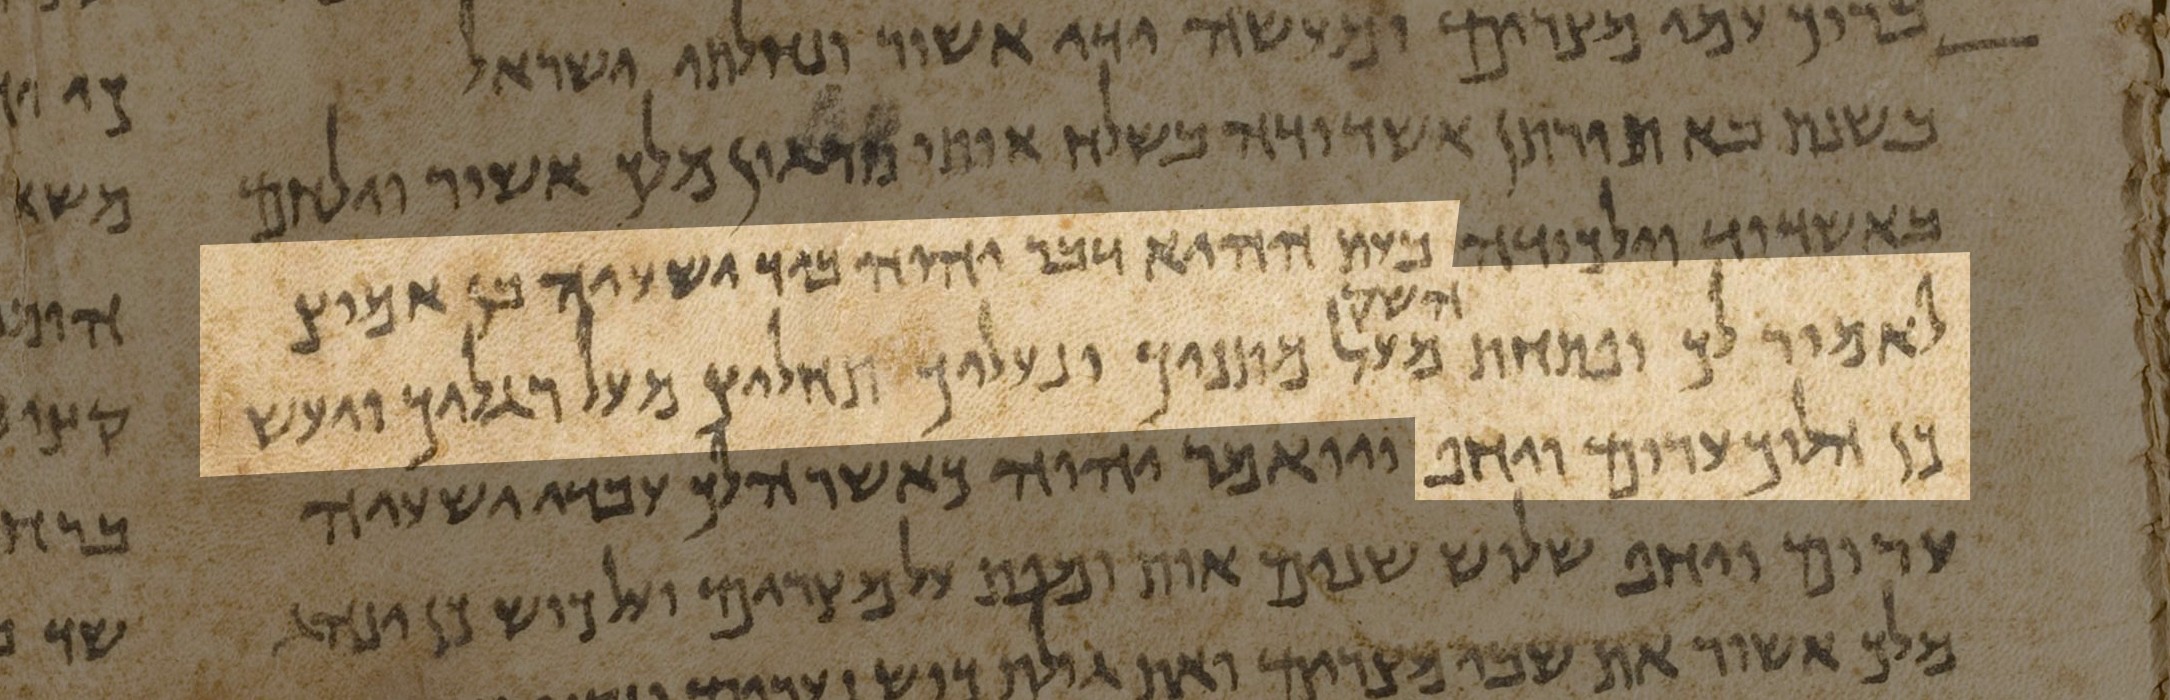 ברוך עמי מצרים ומעשה ידי אשור ונחלתי ישראל
בשנת בא תורתן אשדודה בשלח אותו סרגון מלך אשור וילחם
באשדוד וילכודה בעת ההיא דבר יהוה ביד ישעיה בן אמוץ
השק
לאמור לך ופתחת מעל מתניך ונעליך תחלוץ מעל רגליך ויעש
כן הלוך ערום ויחף ויואמר יהוה כאשר הלך עבדי ישעיה
ערום ויחף שלוש שנים אות ומפת על מצרים ועל כוש כן ינהג
מלך אשור את שבי מצרים ואת גולת כוש